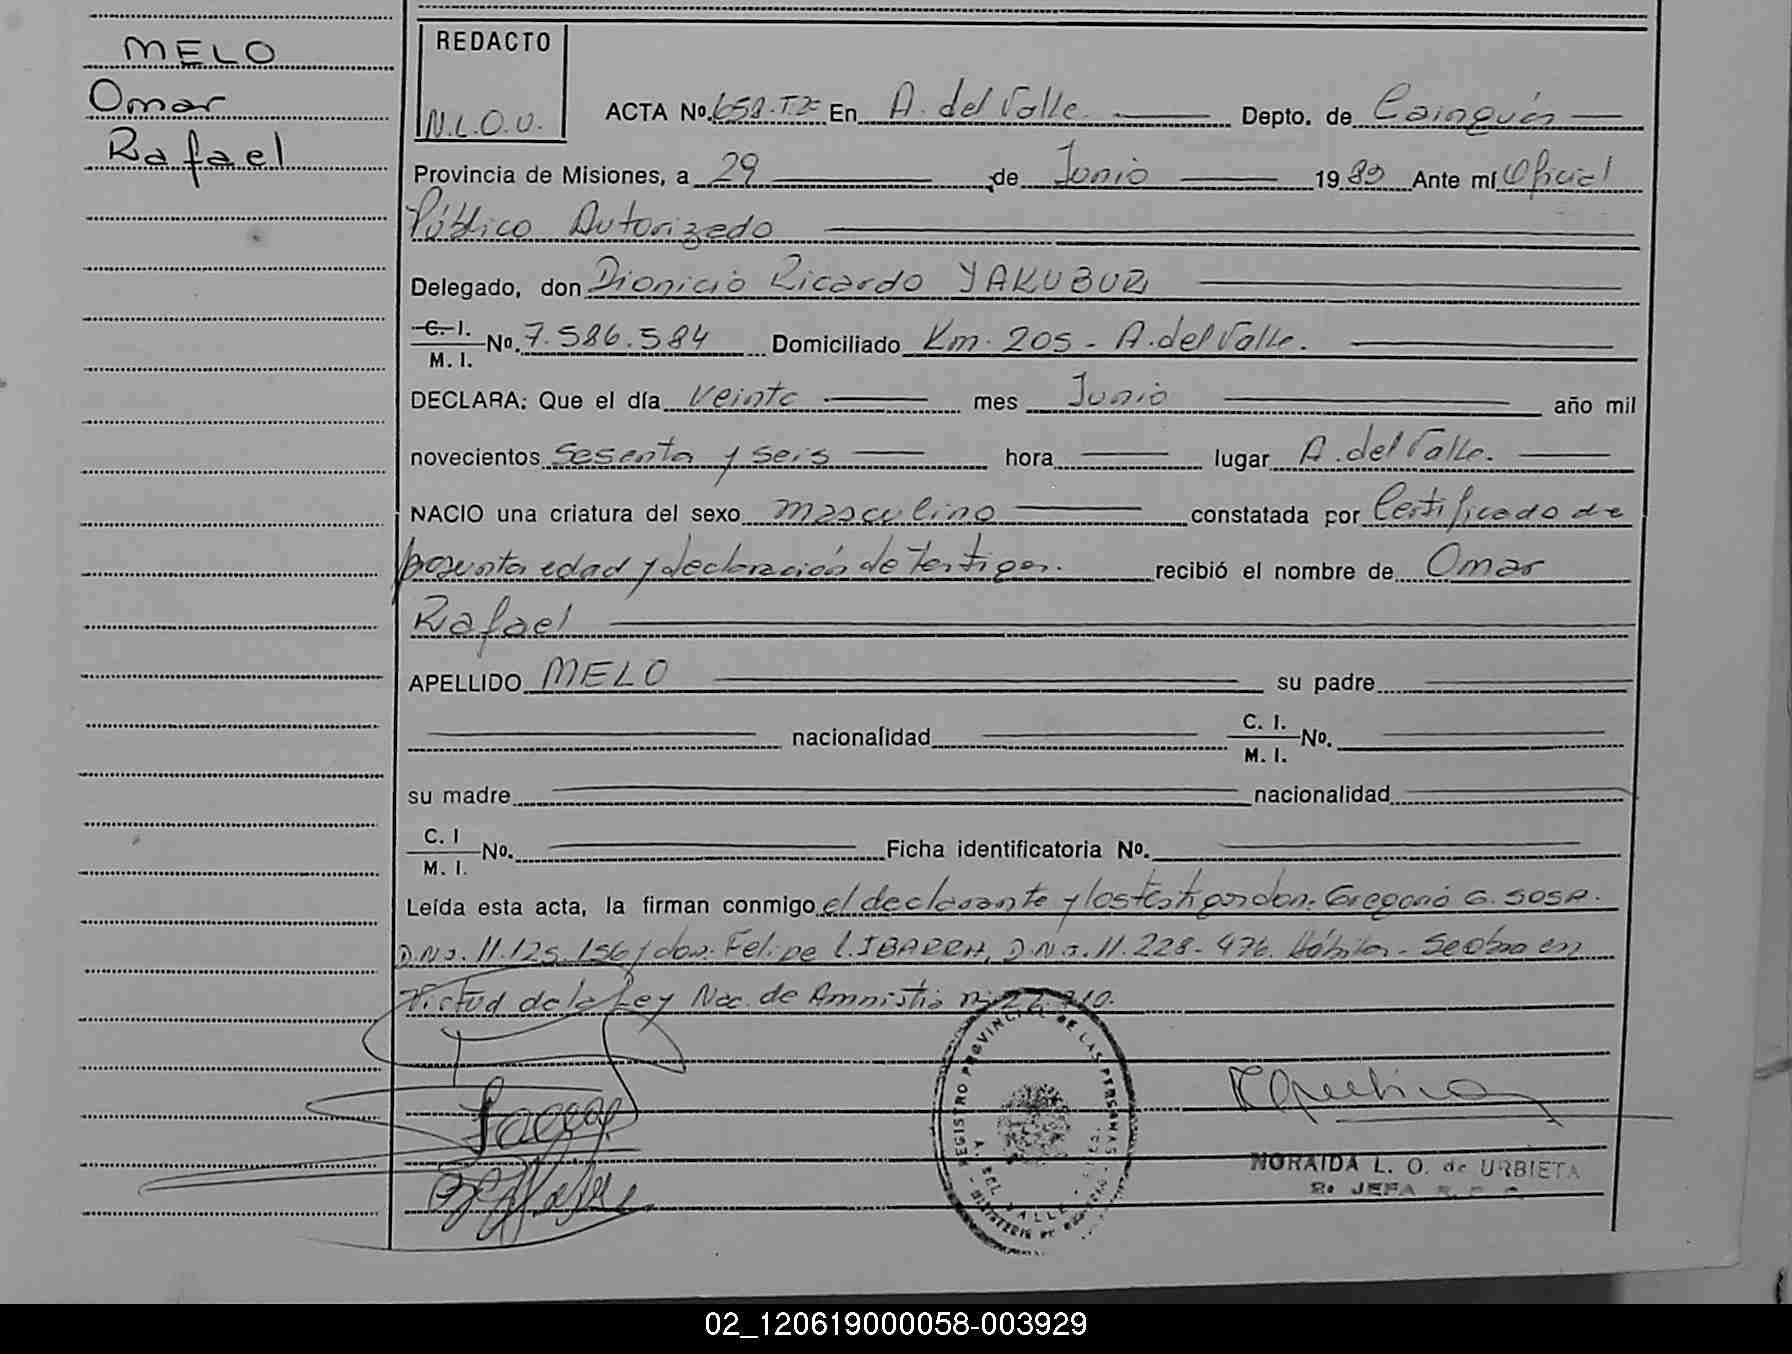 MELO
Omar
Rafael
REDACTO
N.L.O.U.
ACTA No. 658-T.2º En A. del Valle. Depto. de Cainguás
Provincia de Misiones, a 29 de Junio 1989 Ante mí Oficial
Público Autorizado
Delegado, don Dionicio Ricardo YAKUBUR
C. I.
M. I. No. 7.586.584 Domiciliado Km. 205 - A. del Valle.
DECLARA: Que el día veinte mes Junio año mil
novecientos sesenta y seis hora lugar A. del Valle.
NACIO una criatura del sexo masculino constatada por Certificado de
presunta edad y declaración de testigos. recibió el nombre de Omar
Rafael
APELLIDO MELO su padre
nacionalidad C. I.
M. I. No.
su madre nacionalidad
C. I
M. I. No. Ficha identificatoria No.
Leída esta acta, la firman conmigo el declarante y los testigos don: Gregorio G. SOSA.
D.N.I. 11.125.156 y don: Felipe L. IBARRA, D.N.I. 11.228-476. Hábiles - Se obra en
Virtud de la Ley Nac. de Amnistía
REGISTRO PROVINCIAL DE LAS PERSONAS
A. DEL VALLE
NORAIDA L. O. de URBIETA
JEFA
02_120619000058-003929